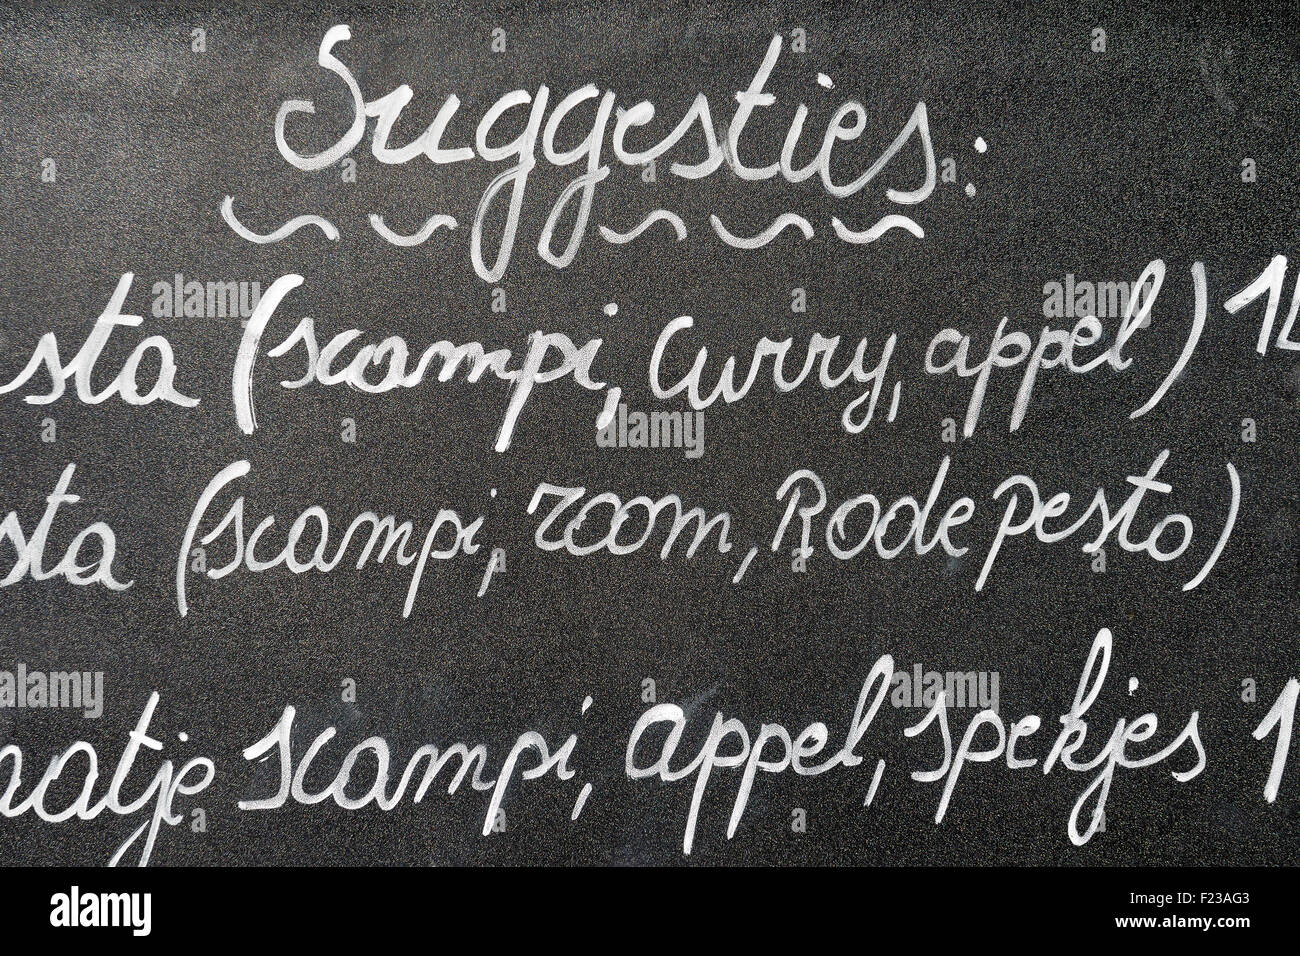 Suggesties:
sta (scampi, Curry, appel)
sta (scampi, room, Rode pesto)
aatje scampi, appel, spekjes
alamy
Image ID: F23AG3
www.alamy.com